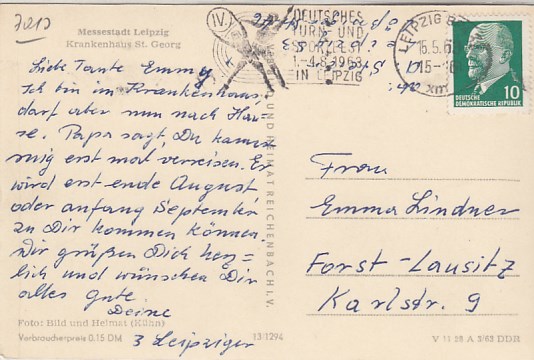 7213
Messestadt Leipzig
Krankenhaus St. Georg
Liebe Tante Emmy
Ich bin im Krankenhaus,
darf aber nun nach Hau-
se. Papa sagt, Du kannst
mig erst mal verreisen. Er
wird erst ende August,
oder anfang September
zu Dir kommen können.
Wir grüßen Dich herz-
lich und wünschen Dir
alles gute.
Deine
3 Leipziger
Foto: Bild und Heimat (Kühn)
Verbraucherpreis 0,15 DM
13/1294
UND HEIMAT REICHENBACH I. V.
IV.
DEUTSCHES
TURN- UND
SPORTFEST
1.-4.8.1963
IN LEIPZIG
LEIPZIG
15.5.63
15-
DEUTSCHE
DEMOKRATISCHE REPUBLIK
10
Frau
Emma Lindner
Forst-Lausitz
Karlstr. 9
V 11 28 A 3/63 DDR